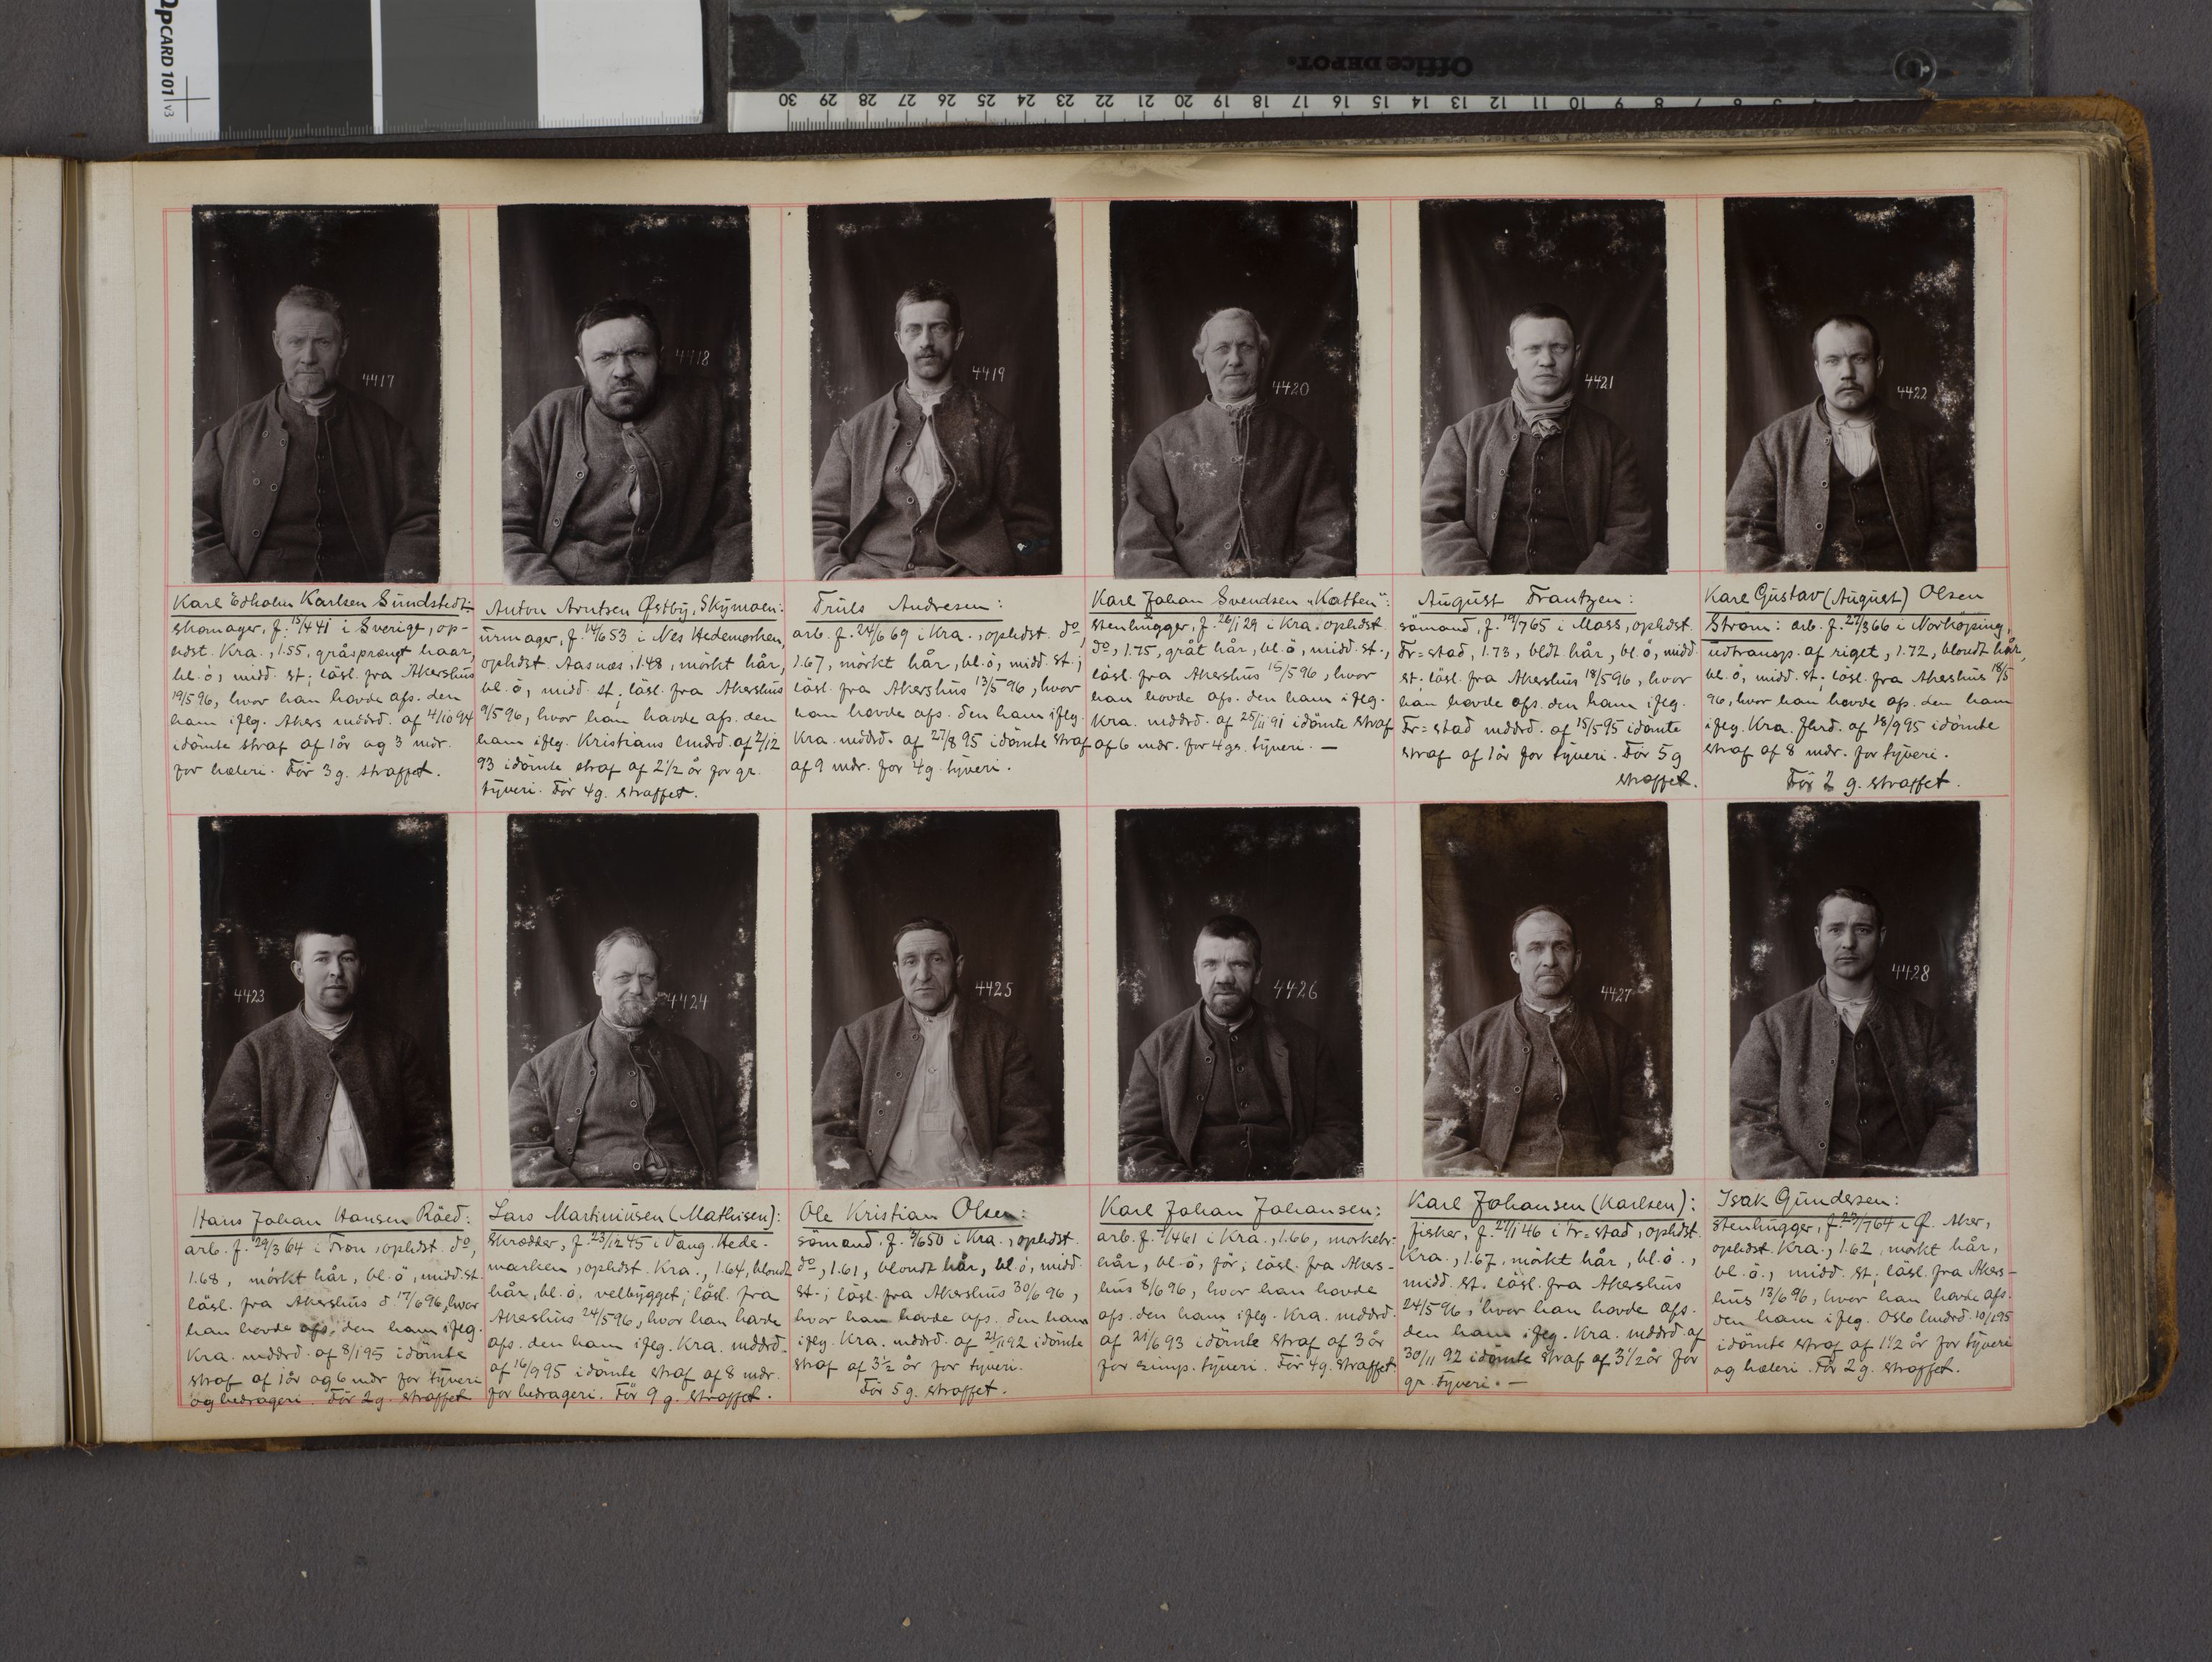 OpCARD 101 v3
Office DEPOT
30 29 28 27 26 25 24 23 22 21 20 19 18 17 16 15 14 13 12 11 10 9 8 7 6 5 4
4417
4418
4419
4420
4421
4422
Karl Edholm Karlsen Sundstedt:
skomager, f. 15/4 41 i Sverige, op-
hdst. Kra., 1.55, gråsprængt haar,
bl. ö, midd. st; lösl. fra Akershus
19/5 96, hvor han havde afs. den
ham iflg. Akers meddrd. af 4/10 94
idömte straf af 1 år og 3 mdr.
for hæleri. För 3 g. straffet.
Anton Arntsen Østby, Skymoen:
urmager, f. 14/6 53 i Nes Hedemarken,
ophdst. Aasnæs, 1.48, mörkt hår,
bl. ö, midd. st; lösl. fra Akershus
9/5 96, hvor han havde afs. den
ham iflg. Kristians lmdrd. af 2/12
93 idömte straf af 2 1/2 år for gr.
tyveri. För 4 g. straffet.
Truls Andresen:
arb. f. 24/6 69 i Kra., ophdst. do,
1.67, mörkt hår, bl. ö, midd. st.;
lösl. fra Akershus 13/5 96, hvor
han havde afs. den ham iflg.
Kra. meddrd. af 27/8 95 idömte straf
af 9 mdr. for 4 g. tyveri.
Karl Johan Svendsen "Katten":
stenhugger, f. 26/1 29 i Kra. ophdst
do, 1.75, gråt hår, bl. ö, midd. st.,
lösl. fra Akershus 15/5 96, hvor
han havde afs. den ham iflg.
Kra. meddrd. af 25/11 91 idömte straf
af 6 mdr. for 4 gs. tyveri. —
August Frantzen:
sömand, f. 19/7 65 i Moss, ophdst.
Fr=stad, 1.73, bldt. hår, bl. ö, midd.
st; lösl. fra Akershus 18/5 96, hvor
han havde afs. den ham iflg.
Fr=stad meddrd. af 15/5 95 idömte
straf af 1 år for tyveri. För 5 g
straffet.
Karl Gustav (August) Olsen
Strøm: arb. f. 27/3 66 i Norköping,
udtransp. af riget, 1.72, blondt hår,
bl. ö, midd. st; lösl. fra Akershus 18/5
96, hvor han havde afs. den ham
iflg. Kra. fhrd. af 18/9 95 idömte
straf af 8 mdr. for tyveri.
För 2 g. straffet.
4423
4424
4425
4426
4427
4428
Hans Johan Hansen Röed:
arb. f. 29/3 64 i Fron, ophdst. do,
1.68, mörkt hår, bl. ö, midd. st.
lösl. fra Akershus d. 17/6 96, hvor
han havde afs. den ham iflg.
Kra. meddrd. af 8/1 95 idömte
straf af 1 år og 6 mdr for tyveri
og bedrageri. För 2 g. straffet
Lars Martiniusen (Mathisen):
skrædder, f. 23/12 45 i Vang. Hede-
marken, ophdst. Kra., 1.64, blondt
hår, bl. ö, velbygget; lösl. fra
Akershus 24/5 96, hvor han havde
afs. den ham iflg. Kra. meddrd.
af 16/9 95 idömte straf af 8 mdr.
for bedrageri. För 9 g. straffet.
Ole Kristian Olsen:
sömand. f. 5/6 50 i Kra., ophdst.
do, 1.61, blondt hår, bl. ö, midd.
st.; lösl. fra Akershus 30/6 96,
hvor han havde afs. den ham
iflg. Kra. meddrd. af 21/11 92 idömte
straf af 3 1/2 år for tyveri.
För 5 g. straffet.
Karl Johan Johansen:
arb. f. 7/4 61 i Kra., 1.66, mörkebr.
hår, bl. ö, för; lösl. fra Akers-
hus 8/6 96, hvor han havde
afs. den ham iflg. Kra. meddrd.
af 21/6 93 idömte straf af 3 år
for simp. tyveri. För 4 g. straffet
Karl Johansen (Karlsen):
fisker, f. 27/1 46 i Fr=stad, ophdst.
Kra., 1.67, mörkt hår, bl. ö.,
midd. st. lösl. fra Akershus
24/5 96, hvor han havde afs.
den ham iflg. Kra. meddrd. af
30/11 92 idömte straf af 3 1/2 år for
gr. tyveri. —
Isak Gundersen:
stenhugger, f. 29/7 64 i Ø. Aker,
ophdst. Kra., 1.62, mörkt hår,
bl. ö., midd. st; lösl. fra Akers-
hus 13/6 96, hvor han havde afs.
den ham iflg. Oslo lmdrd. 10/1 95
idömte straf af 1 1/2 år for tyveri
og hæleri. För 2 g. straffet.